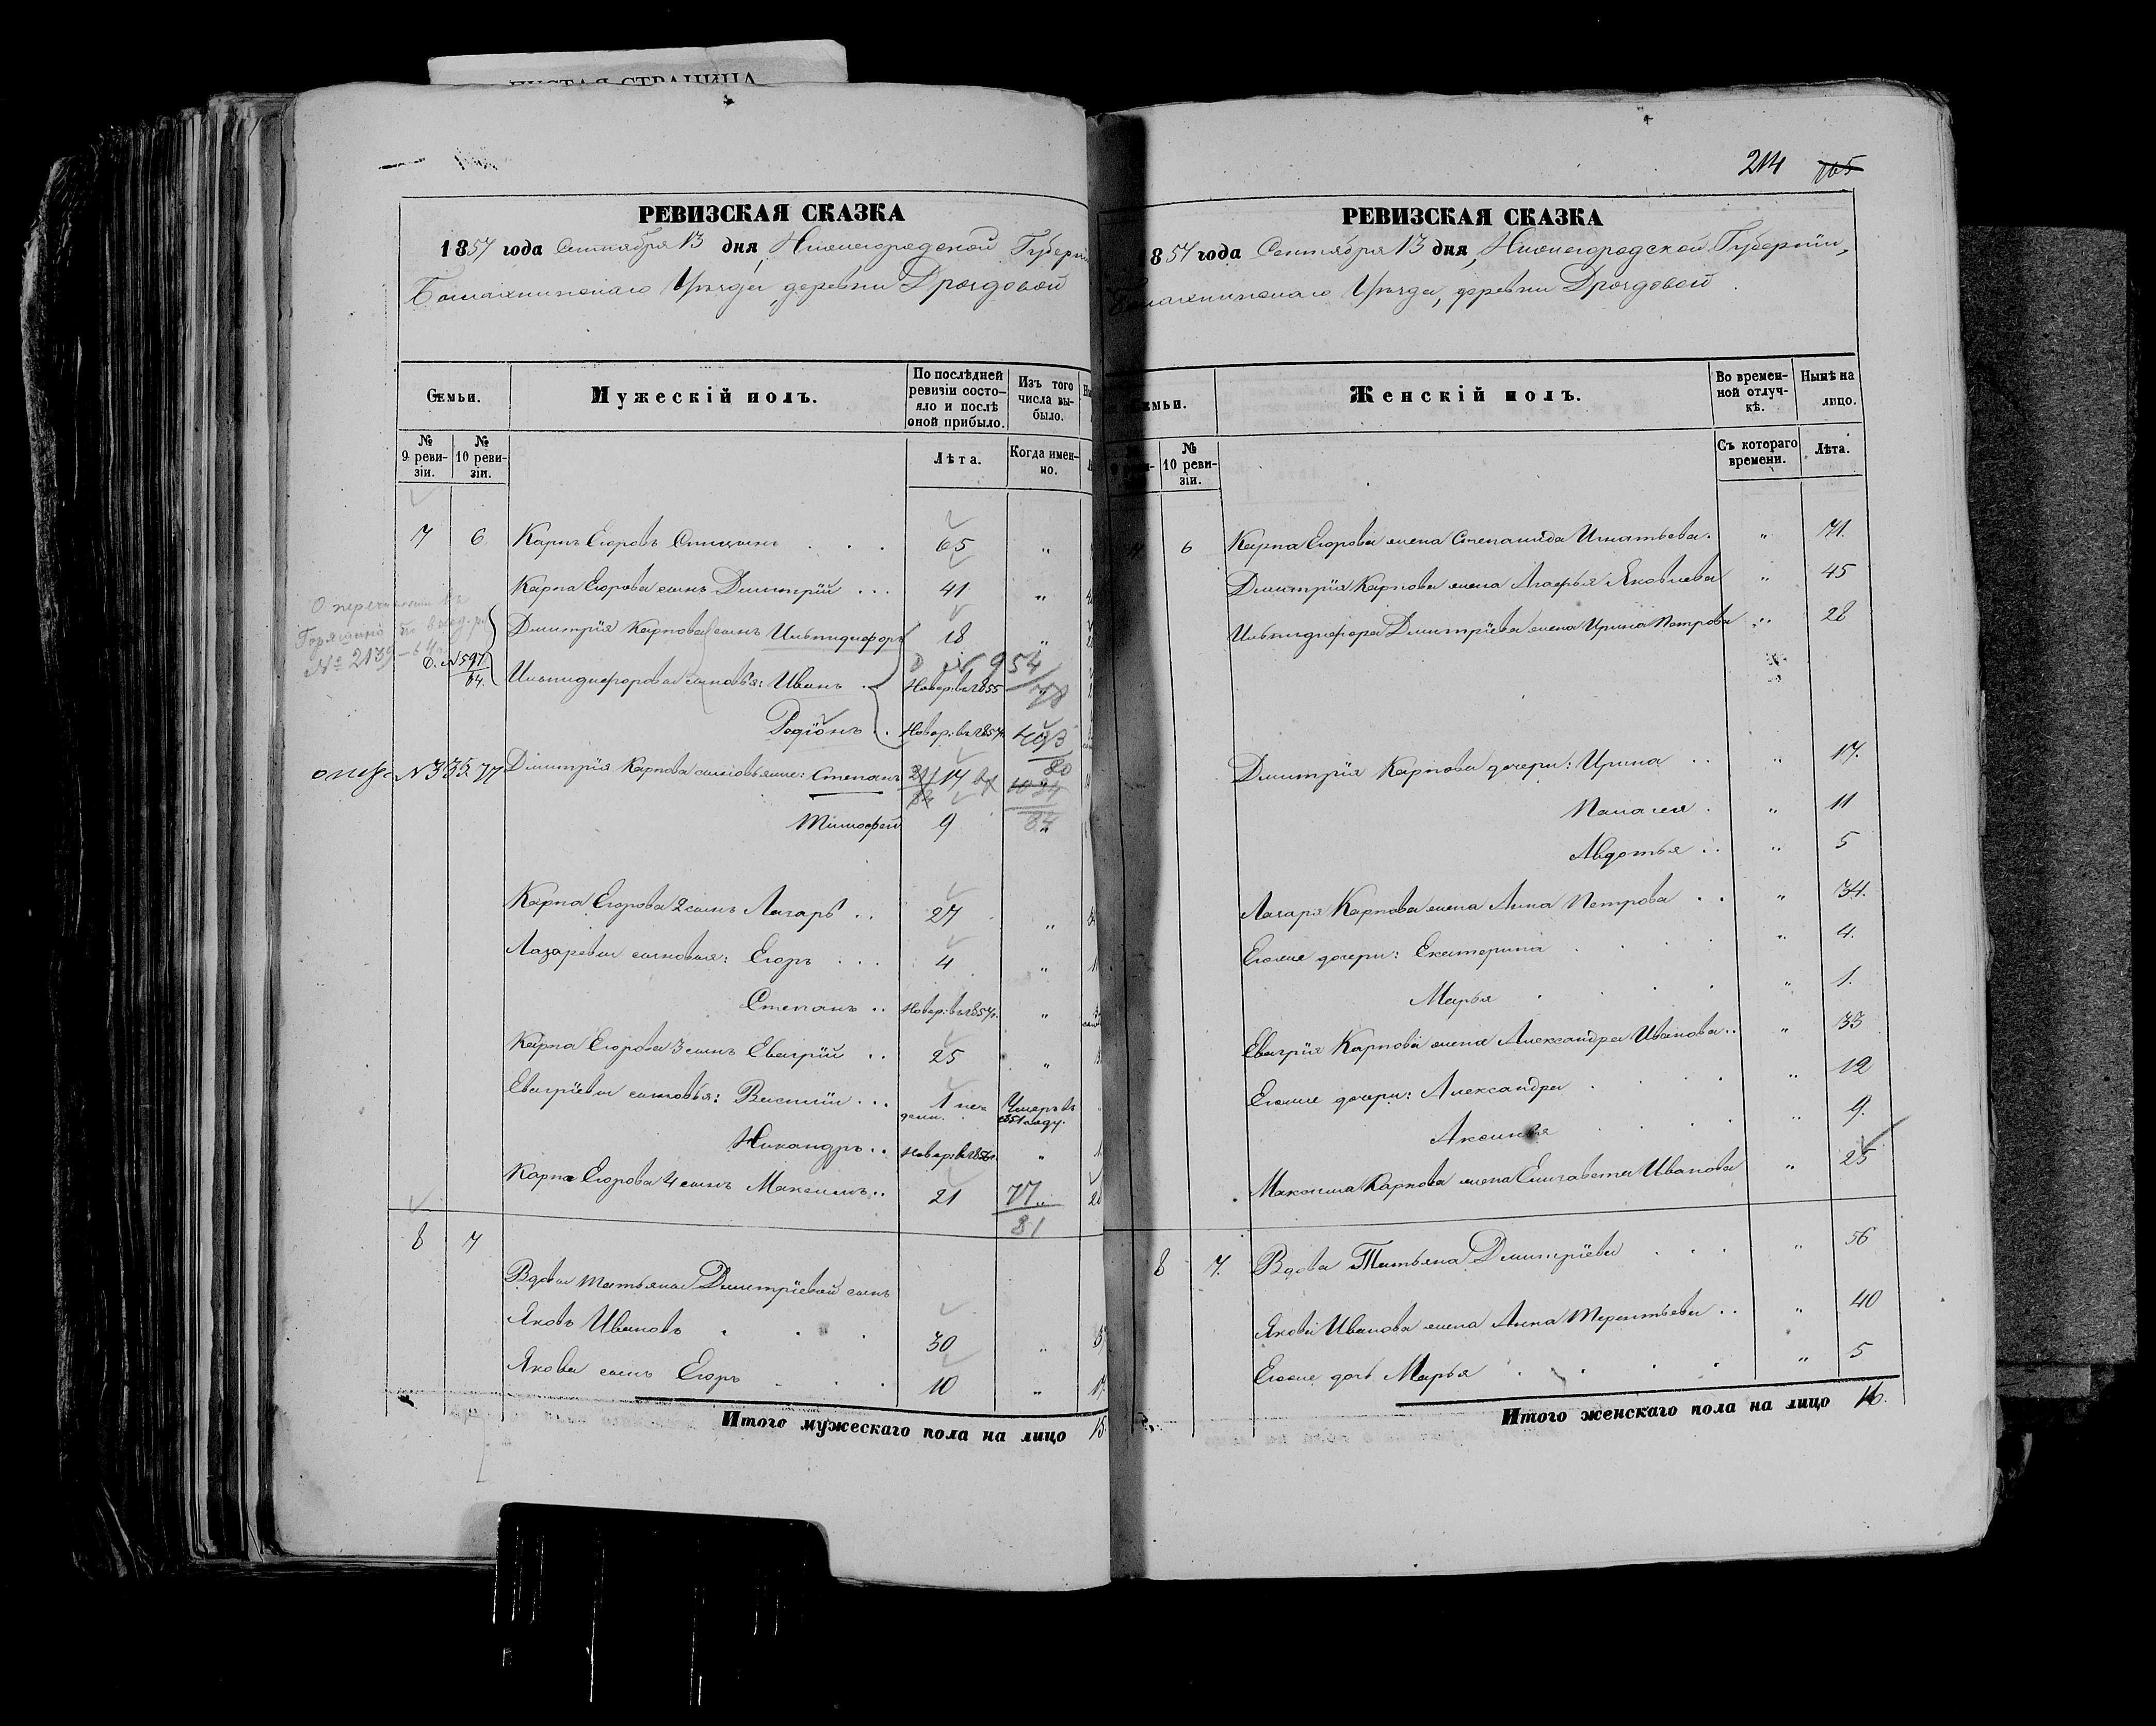 РЕВИЗСКАЯ СКАЗКА
1857 года Сентября 13 дня, Нижегородской Губерніи
Балахнинскаго Уѣзда, деревни Дроздовой
Семьи.
Мужескій полъ.
По послѣдней ревизіи состо-
яло и послѣ
оной прибыло.
Изъ того
числа вы-
было.
№
9 реви-
зіи.
№
10 реви-
зіи.
Лѣта.
Когда имен-
но.
7 6. Карпъ Егоровъ . . . 65 "
Карпа Егорова сынъ Дмитрій . . . 41 "
Дмитрія Карпова сынъ Ильпидифоръ 18 "
№ 2139
№597
64.
954
78
Ильпидифоровы сыновья: Иванъ . . Новор: въ 1855
Родіонъ . . Новор: въ 1857
80
№ 335 77 Дмитрія Карпова сыновья же: Степанъ 17
Тимофей 9 "
84
Карпа Егорова 2 сынъ Лазарь . . 27 "
Лазаревы сыновья: Егоръ . . . 4 "
Степанъ . . Новор: въ 1857 г. "
Карпа Егорова 3 сынъ Евагрій . . 25 "
Евагріевы сыновья: Василій . . . 1 не-
дели.
Умеръ въ
1851 году.
Никандръ . . Новор: въ 1856 г. "
Карпа Егорова 4 сынъ Максимъ . . 21
77
81
8 7
Вдовы Татьяны Дмитріевой сынъ
Яковъ Ивановъ . . . 30 "
Якова сынъ Егоръ . . . 10 "
Итого мужескаго пола на лицо 15
214 165
РЕВИЗСКАЯ СКАЗКА
857 года Сентября 13 дня, Нижегородской Губерніи,
Балахнинскаго Уѣзда, деревни Дроздовой.
мьи.
Женскій полъ.
Во времен-
ной отлуч-
кѣ.
Нынѣ на
лицо.
№
10 реви-
зіи.
Съ котораго
времени.
Лѣта.
7 6 Карпа Егорова жена Степанида Игнатьева. " 71.
Дмитрія Карпова жена Агафья Яковлева " 45
Ильпидифора Дмитріева жена Ирина Петрова " 28
Дмитрія Карпова дочери: Ирина . . " 17.
Палагея . " 11
Авдотья . . " 5
Лазаря Карпова жена Анна Петрова . . " 34.
Егоже дочери: Екатерина . . . . " 4.
Марья . . . . " 1.
Евагрія Карпова жена Александра Иванова . . " 33
Егоже дочери: Александра . . . . " 12
Аксинья . . . . " 9.
Максима Карпова жена Елизавета Иванова " 25
8 7. Вдова Татьяна Дмитріева . . . " 56
Якова Иванова жена Анна Терентьева . . " 40
Егоже дочь Марья . . . . " 5
Итого женскаго пола на лицо 16.